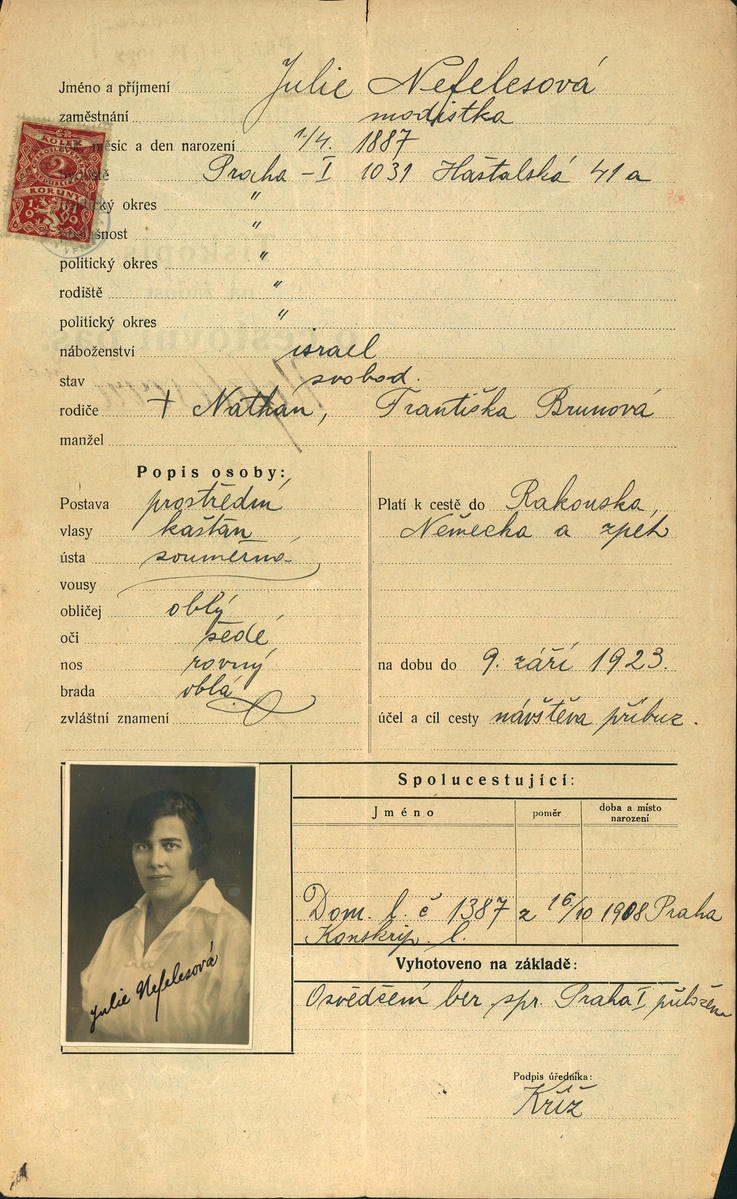 Jméno a příjmení Julie Nefelesová
zaměstnání modistka
měsíc a den narození 1/4. 1887
Praha – I 1031 Haštalská 41 a
okres "
"
politický okres "
rodiště "
politický okres "
náboženství israel
stav svobod.
rodiče + Nathan, Františka Brunová
manžel
Popis osoby:
Postava prostřední
vlasy kaštan
ústa souměrná
vousy
obličej oblý
oči šedé
nos rovný
brada oblá
zvláštní znamení
Platí k cestě do Rakouska,
Německa a zpět
na dobu do 9. září 1923.
účel a cíl cesty návštěva příbuz.
KOLEK
2
KORUN
1919
Julie Nefelesová
Spolucestující:
Jméno poměr doba a místo
narození
Dom. l. č 1387 z 16/10 1908 Praha
Konskrip. l.
Vyhotoveno na základě:
Osvědčení ber. spr. Praha I přiložen
Podpis úředníka:
Kříž